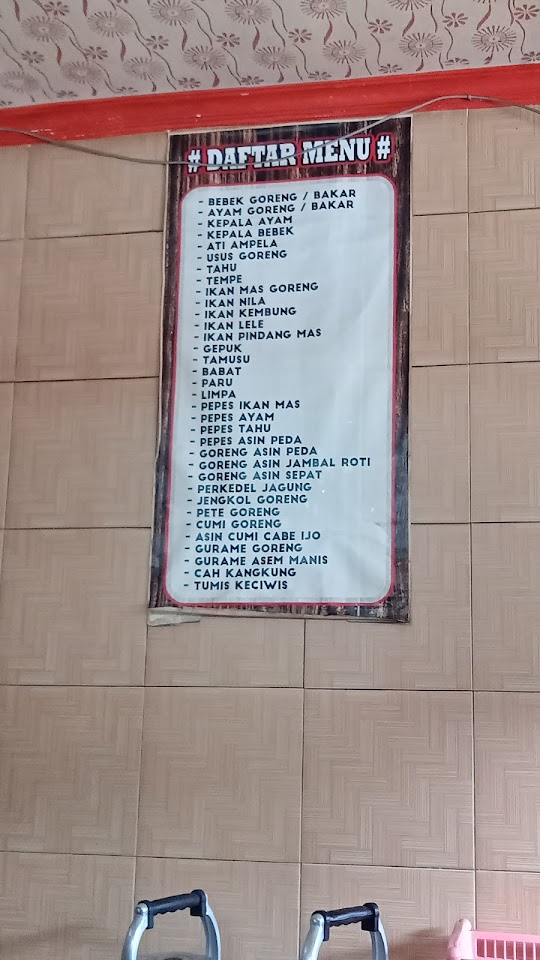 # DAFTAR MENU #
- BEBEK GORENG / BAKAR
- AYAM GORENG / BAKAR
- KEPALA AYAM
- KEPALA BEBEK
- ATI AMPELA
- USUS GORENG
- TAHU
- TEMPE
- IKAN MAS GORENG
- IKAN NILA
- IKAN KEMBUNG
- IKAN LELE
- IKAN PINDANG MAS
- GEPUK
- TAMUSU
- BABAT
- PARU
- LIMPA
- PEPES IKAN MAS
- PEPES AYAM
- PEPES TAHU
- PEPES ASIN PEDA
- GORENG ASIN PEDA
- GORENG ASIN JAMBAL ROTI
- GORENG ASIN SEPAT
- PERKEDEL JAGUNG
- JENGKOL GORENG
- PETE GORENG
- CUMI GORENG
- ASIN CUMI CABE IJO
- GURAME GORENG
- GURAME ASEM MANIS
- CAH KANGKUNG
- TUMIS KECIWIS